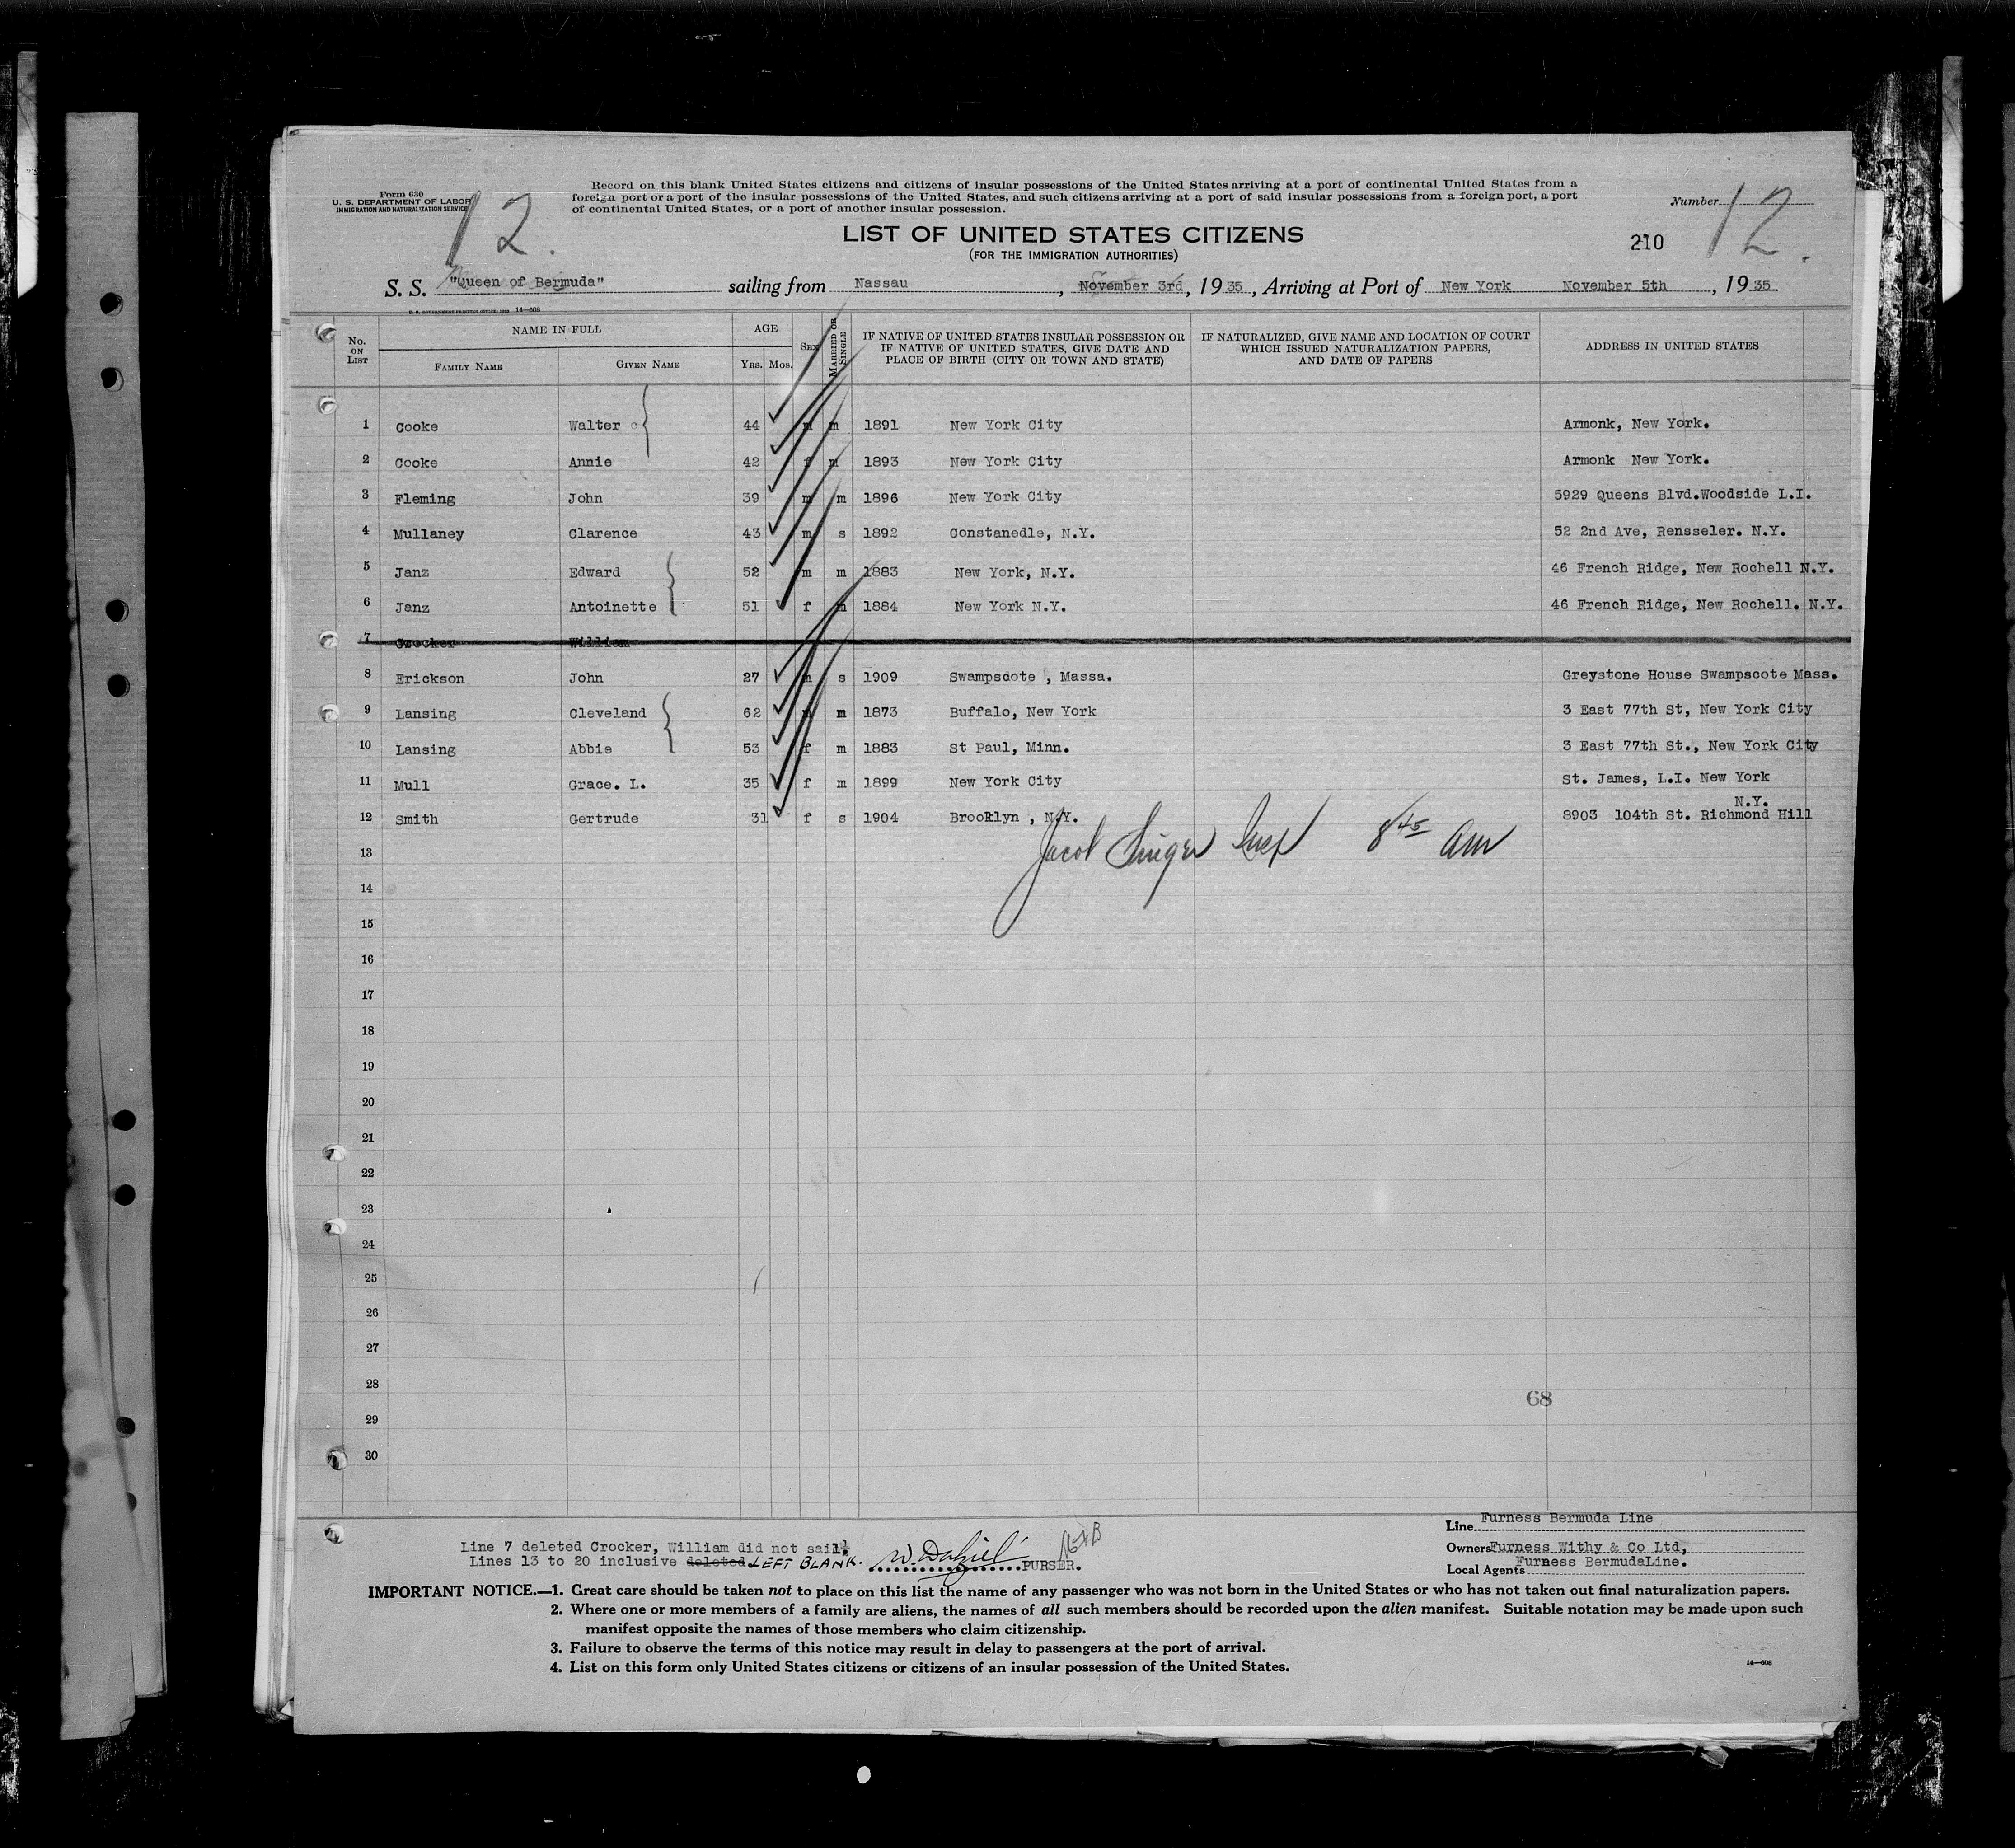 Form 630
U. S. DEPARTMENT OF LABOR
IMMIGRATION AND NATURALIZATION SERVICE
12.
Record on this blank United States citizens and citizens of insular possessions of the United States arriving at a port of continental United States from a
foreign port or a port of the insular possessions of the United States, and such citizens arriving at a port of said insular possessions from a foreign port, a port
of continental United States, or a port of another insular possession.
Number 12.
LIST OF UNITED STATES CITIZENS
(FOR THE IMMIGRATION AUTHORITIES)
210
S. S. "Queen of Bermuda" sailing from Nassau, November 3rd, 1935, Arriving at Port of New York November 5th, 1935
U. S. GOVERNMENT PRINTING OFFICE: 1933 14—608
No. ON LIST
NAME IN FULL
FAMILY NAME GIVEN NAME
AGE
YRS. MOS.
SEX
MARRIED OR SINGLE
IF NATIVE OF UNITED STATES INSULAR POSSESSION OR
IF NATIVE OF UNITED STATES, GIVE DATE AND
PLACE OF BIRTH (CITY OR TOWN AND STATE)
IF NATURALIZED, GIVE NAME AND LOCATION OF COURT
WHICH ISSUED NATURALIZATION PAPERS,
AND DATE OF PAPERS
ADDRESS IN UNITED STATES
1 Cooke Walter c 44 m m 1891 New York City Armonk, New York.
2 Cooke Annie 42 f m 1893 New York City Armonk New York.
3 Fleming John 39 m m 1896 New York City 5929 Queens Blvd.Woodside L.I.
4 Mullaney Clarence 43 m s 1892 Constanedle, N.Y. 52 2nd Ave, Rensseler. N.Y.
5 Janz Edward 52 m m 1883 New York, N.Y. 46 French Ridge, New Rochell N.Y.
6 Janz Antoinette 51 f m 1884 New York N.Y. 46 French Ridge, New Rochell. N.Y.
7 Crocker William
8 Erickson John 27 m s 1909 Swampscote , Massa. Greystone House Swampscote Mass.
9 Lansing Cleveland 62 m m 1873 Buffalo, New York 3 East 77th St, New York City
10 Lansing Abbie 53 f m 1883 St Paul, Minn. 3 East 77th St., New York City
11 Mull Grace. L. 35 f m 1899 New York City St. James, L.I. New York
12 Smith Gertrude 31 f s 1904 Brooklyn , N.Y. 8903 104th St. Richmond Hill N.Y.
Jacob Singer Insp 8 45 am
13
14
15
16
17
18
19
20
21
22
23
24
25
26
27
28
29
30
68
Line 7 deleted Crocker, William did not sail.
Lines 13 to 20 inclusive deleted LEFT BLANK. PURSER.
Line Furness Bermuda Line
Owners Furness Withy & Co Ltd,
Local Agents Furness BermudaLine.
IMPORTANT NOTICE.—1. Great care should be taken not to place on this list the name of any passenger who was not born in the United States or who has not taken out final naturalization papers.
2. Where one or more members of a family are aliens, the names of all such members should be recorded upon the alien manifest. Suitable notation may be made upon such
manifest opposite the names of those members who claim citizenship.
3. Failure to observe the terms of this notice may result in delay to passengers at the port of arrival.
4. List on this form only United States citizens or citizens of an insular possession of the United States.
14—608